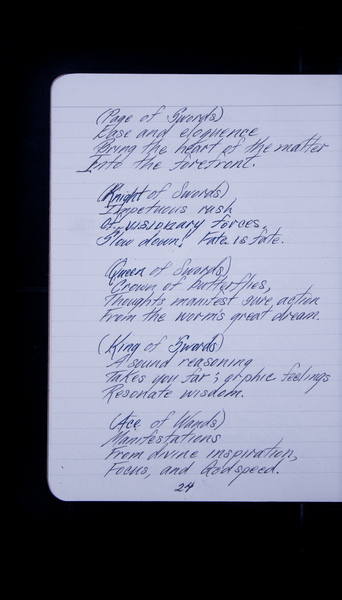 (Page of Swords)
Ease and eloquence
Bring the heart of the matter
Into the forefront.
(Knight of Swords)
Impetuous rush
Of visionary forces,
Slow down! Fate is fate.
(Queen of Swords)
Crown of butterflies,
Thoughts manifest sure action
From the worm's great dream.
(King of Swords)
A sound reasoning
Takes you far; orphic feelings
Resonate wisdom.
(Ace of Wands)
Manifestations
From divine inspiration,
Focus, and Godspeed.
24